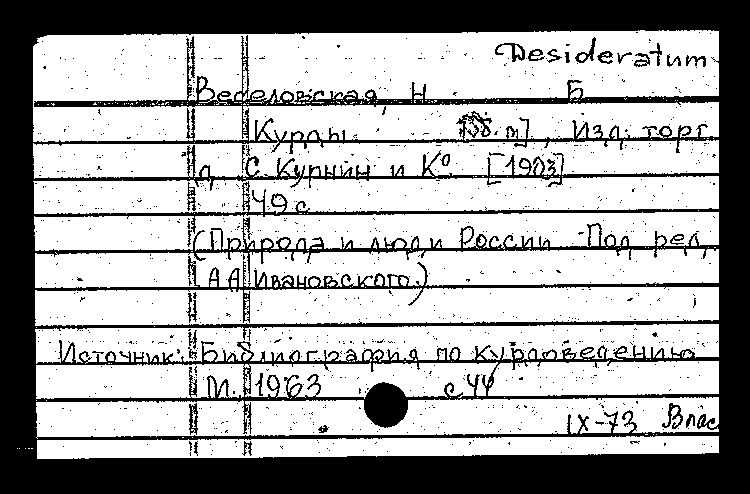 Desideratum
Веселовская, Н. Б
Курды [б.м], Изд. торг.
д. С. Курнин и К° [1903]
49 с
(Природа и люди России Под ред.
А А Ивановского)
Источник: Библиография по курдоведению
М., 1963 с 44
IX-73 Влас